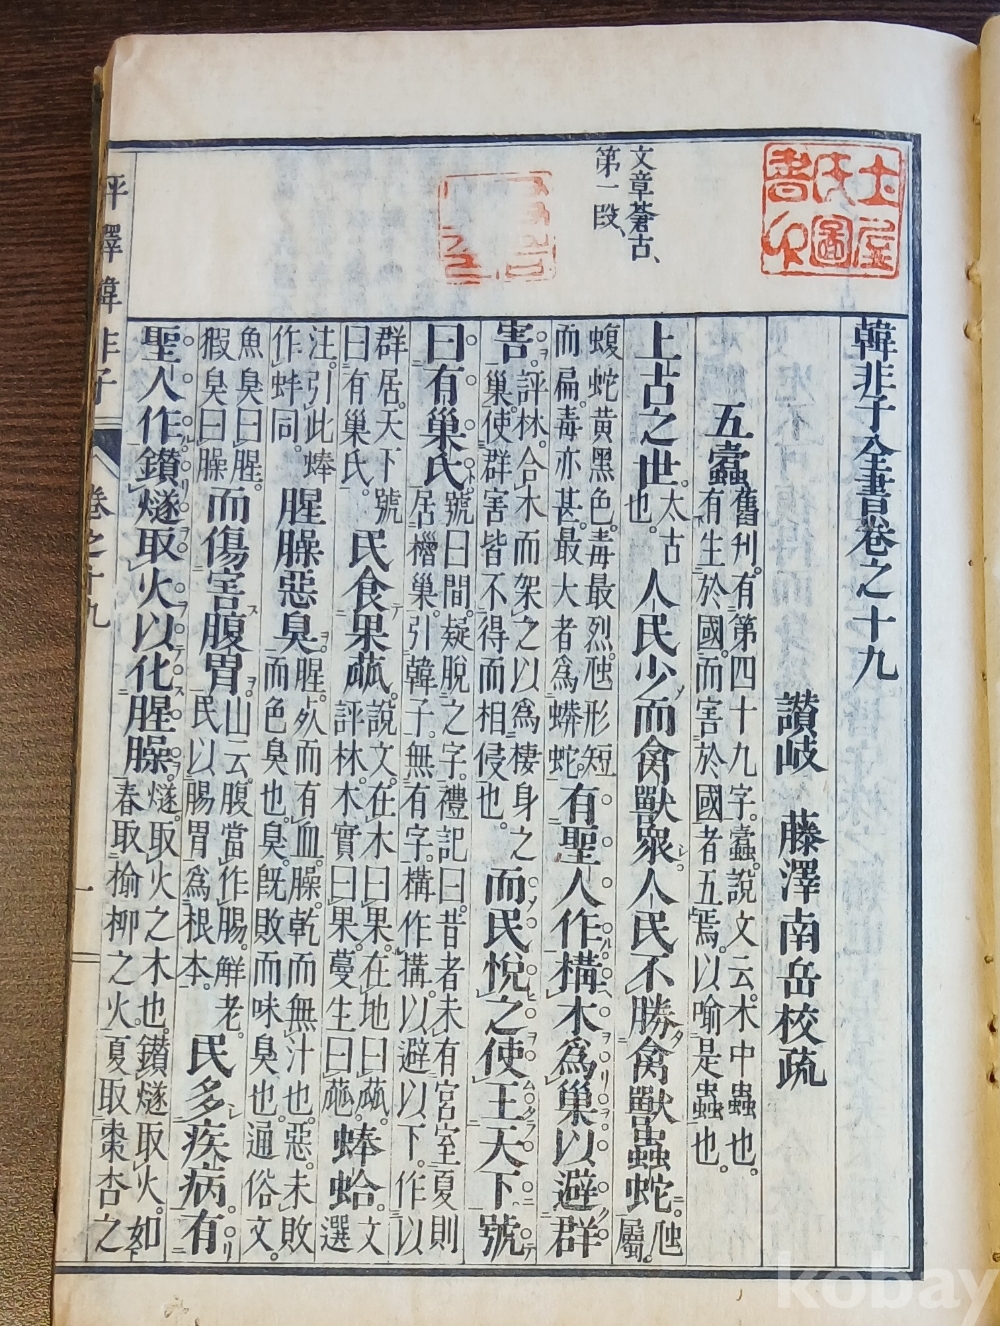 韓非子全書卷之十九
讃岐 藤澤南岳校疏
五蠹 舊刋。有第四十九字。蠹。說文云。木中蟲也。
有生於國。而害於國者五焉。以喻是蟲也。
上古之世。太古也。人民少而禽獸衆人民不勝禽獸蟲蛇。虵屬。
蝮蛇黄黑色。毒最烈。虵形短
而扁。毒亦甚。最大者爲蟒蛇。有聖人作搆木爲巢以避群
害。評林。合木而架之以爲棲身之
巢。使群害皆不得而相侵也。而民悅之使王天下號
曰有巢氏 號曰間。疑脫之字。禮記曰。昔者未有宮室夏則
居橧巢。引韓子。無有字。構作搆。以避以下。作以
群居。天下號
曰有巢氏。民食果蓏。說文。在木曰果。在地曰蓏。
評林。木實曰果。蔓生曰蓏。蜯蛤。文選
注。引此蜯
作蚌同。腥臊惡臭。腥。歺而有血。臊。乾而無汁也。惡。未敗
而色臭也。臭。旣敗而味臭也。通俗文。
魚臭曰腥。
猳臭曰臊 而傷害腹胃。山云。腹當作腸。鮮老。
民以腸胃爲根本。民多疾病有
聖人作鑚燧取火以化腥臊。燧。取火之木也。鑚燧取火。如
春取楡柳之火夏取棗杏之
文章蒼古、
第一段、
土屋氏圖書
評釋韓非子 卷之十九 一
kobay